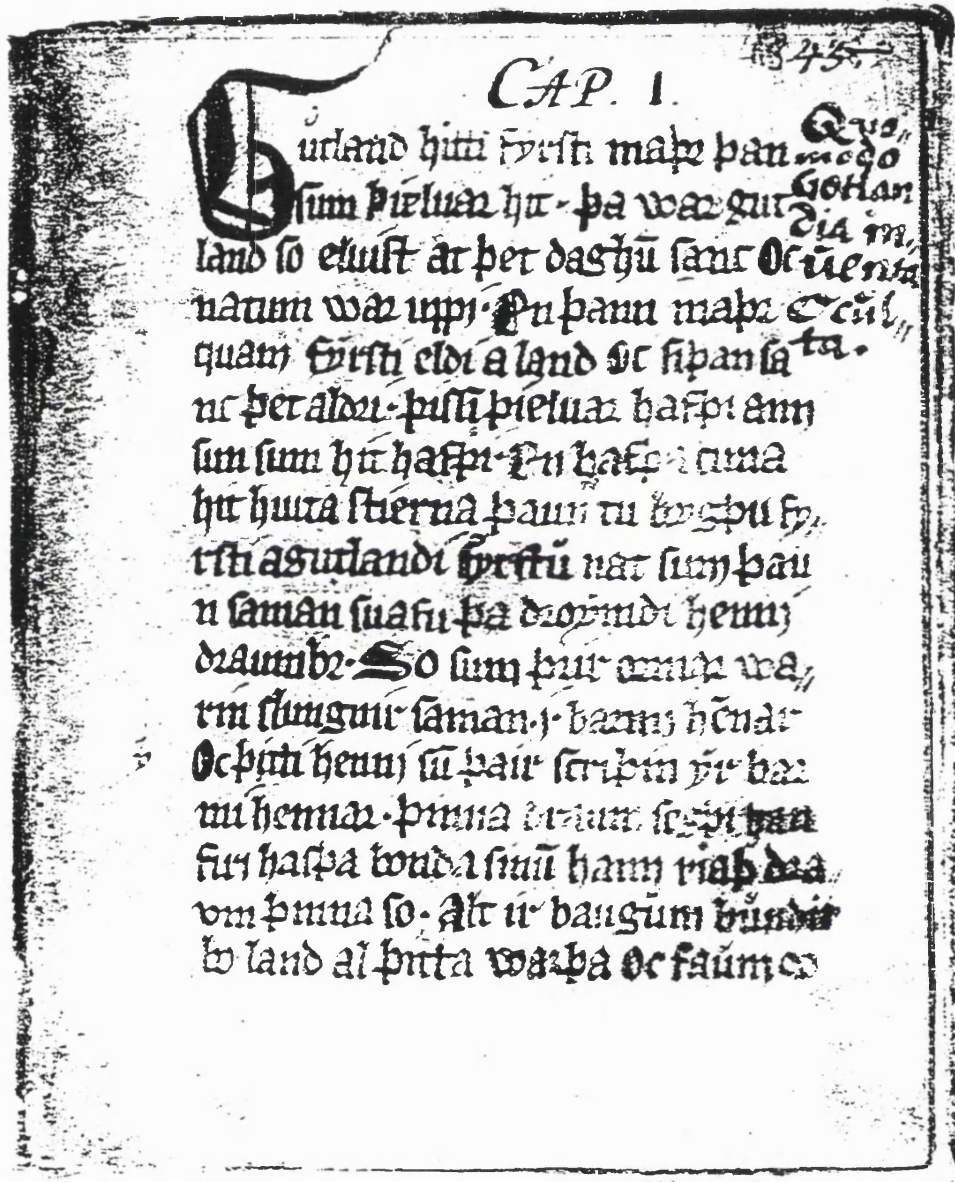 345
CAP. I.
Gutland hitti fyrsti maþr þan
sum þieluar hit. þa war gut
land so eluist at þet daghū sanc Oc
natum war uppi. En þann maþr
quam fyrsti eldi a land Oc siþan sa
nc þet aldri. þissi þieluar hafþi ann
sun sum hit hafþi. En hafþa cuna
hit huita stierna þaun tu bygþu fy„
rsti a gutlandi fyrstū nat sum þau
n saman suafu þa droymdi henni
draumbr. So sum þrir ormar wa„
rin slungnir saman. i. barmi hēnar
Oc þytti henni sū þair scriþin yr bar
mi hennar. þinna draum segþi han
firi hasþa bonda sinū hann riaþ dra
vm þinna so. Alt ir baugum bundit
bo land al þitta warþa Oc faum oc
Quo„
modo
Gotlan
dia in„
uenta
& cul„
ta.